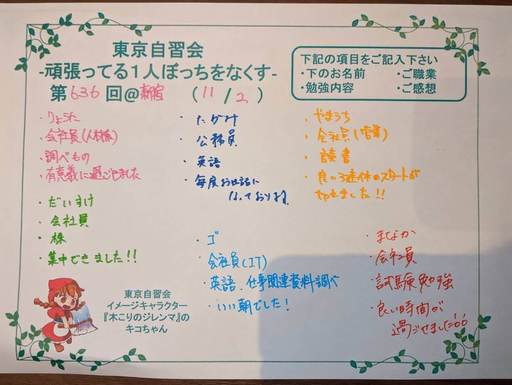 東京自習会
-頑張ってる1人ぼっちをなくす-
第636回@新宿 (11/2)
下記の項目をご記入下さい
・下のお名前 ・ご職業
・勉強内容 ・ご感想
・りょうた
・会社員(人材系)
・調べもの
・有意義に過ごせました
・たかみ
・公務員
・英語
・毎度お世話に
なっております。
・やまうち
・会社員(営業)
・読書
・良い3連休のスタートが
切れました!!
・だいすけ
・会社員
・株
・集中できました!!
・ゴ
・会社員(IT)
・英語、仕事関連資料調べ
・いい朝でした!
・まどか
・会社員
・試験勉強
・良い時間が
過ごせました
東京自習会
イメージキャラクター
『木こりのジレンマ』の
キコちゃん